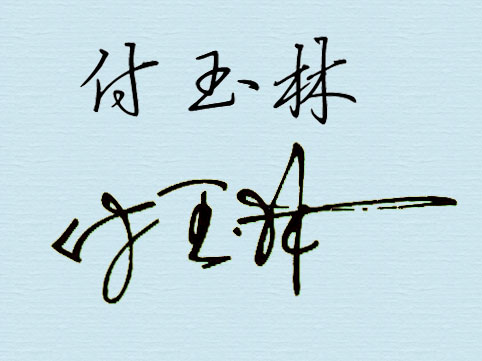 付玉林
付玉林